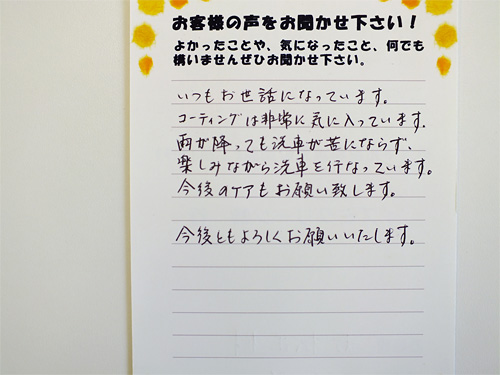 お客様の声をお聞かせ下さい！
よかったことや、気になったこと、何でも
構いませんぜひお聞かせ下さい。
いつもお世話になっています。
コーティングは非常に気に入っています。
雨が降っても洗車が苦にならず、
楽しみながら洗車を行なっています。
今後のケアもお願い致します。
今後ともよろしくお願いいたします。